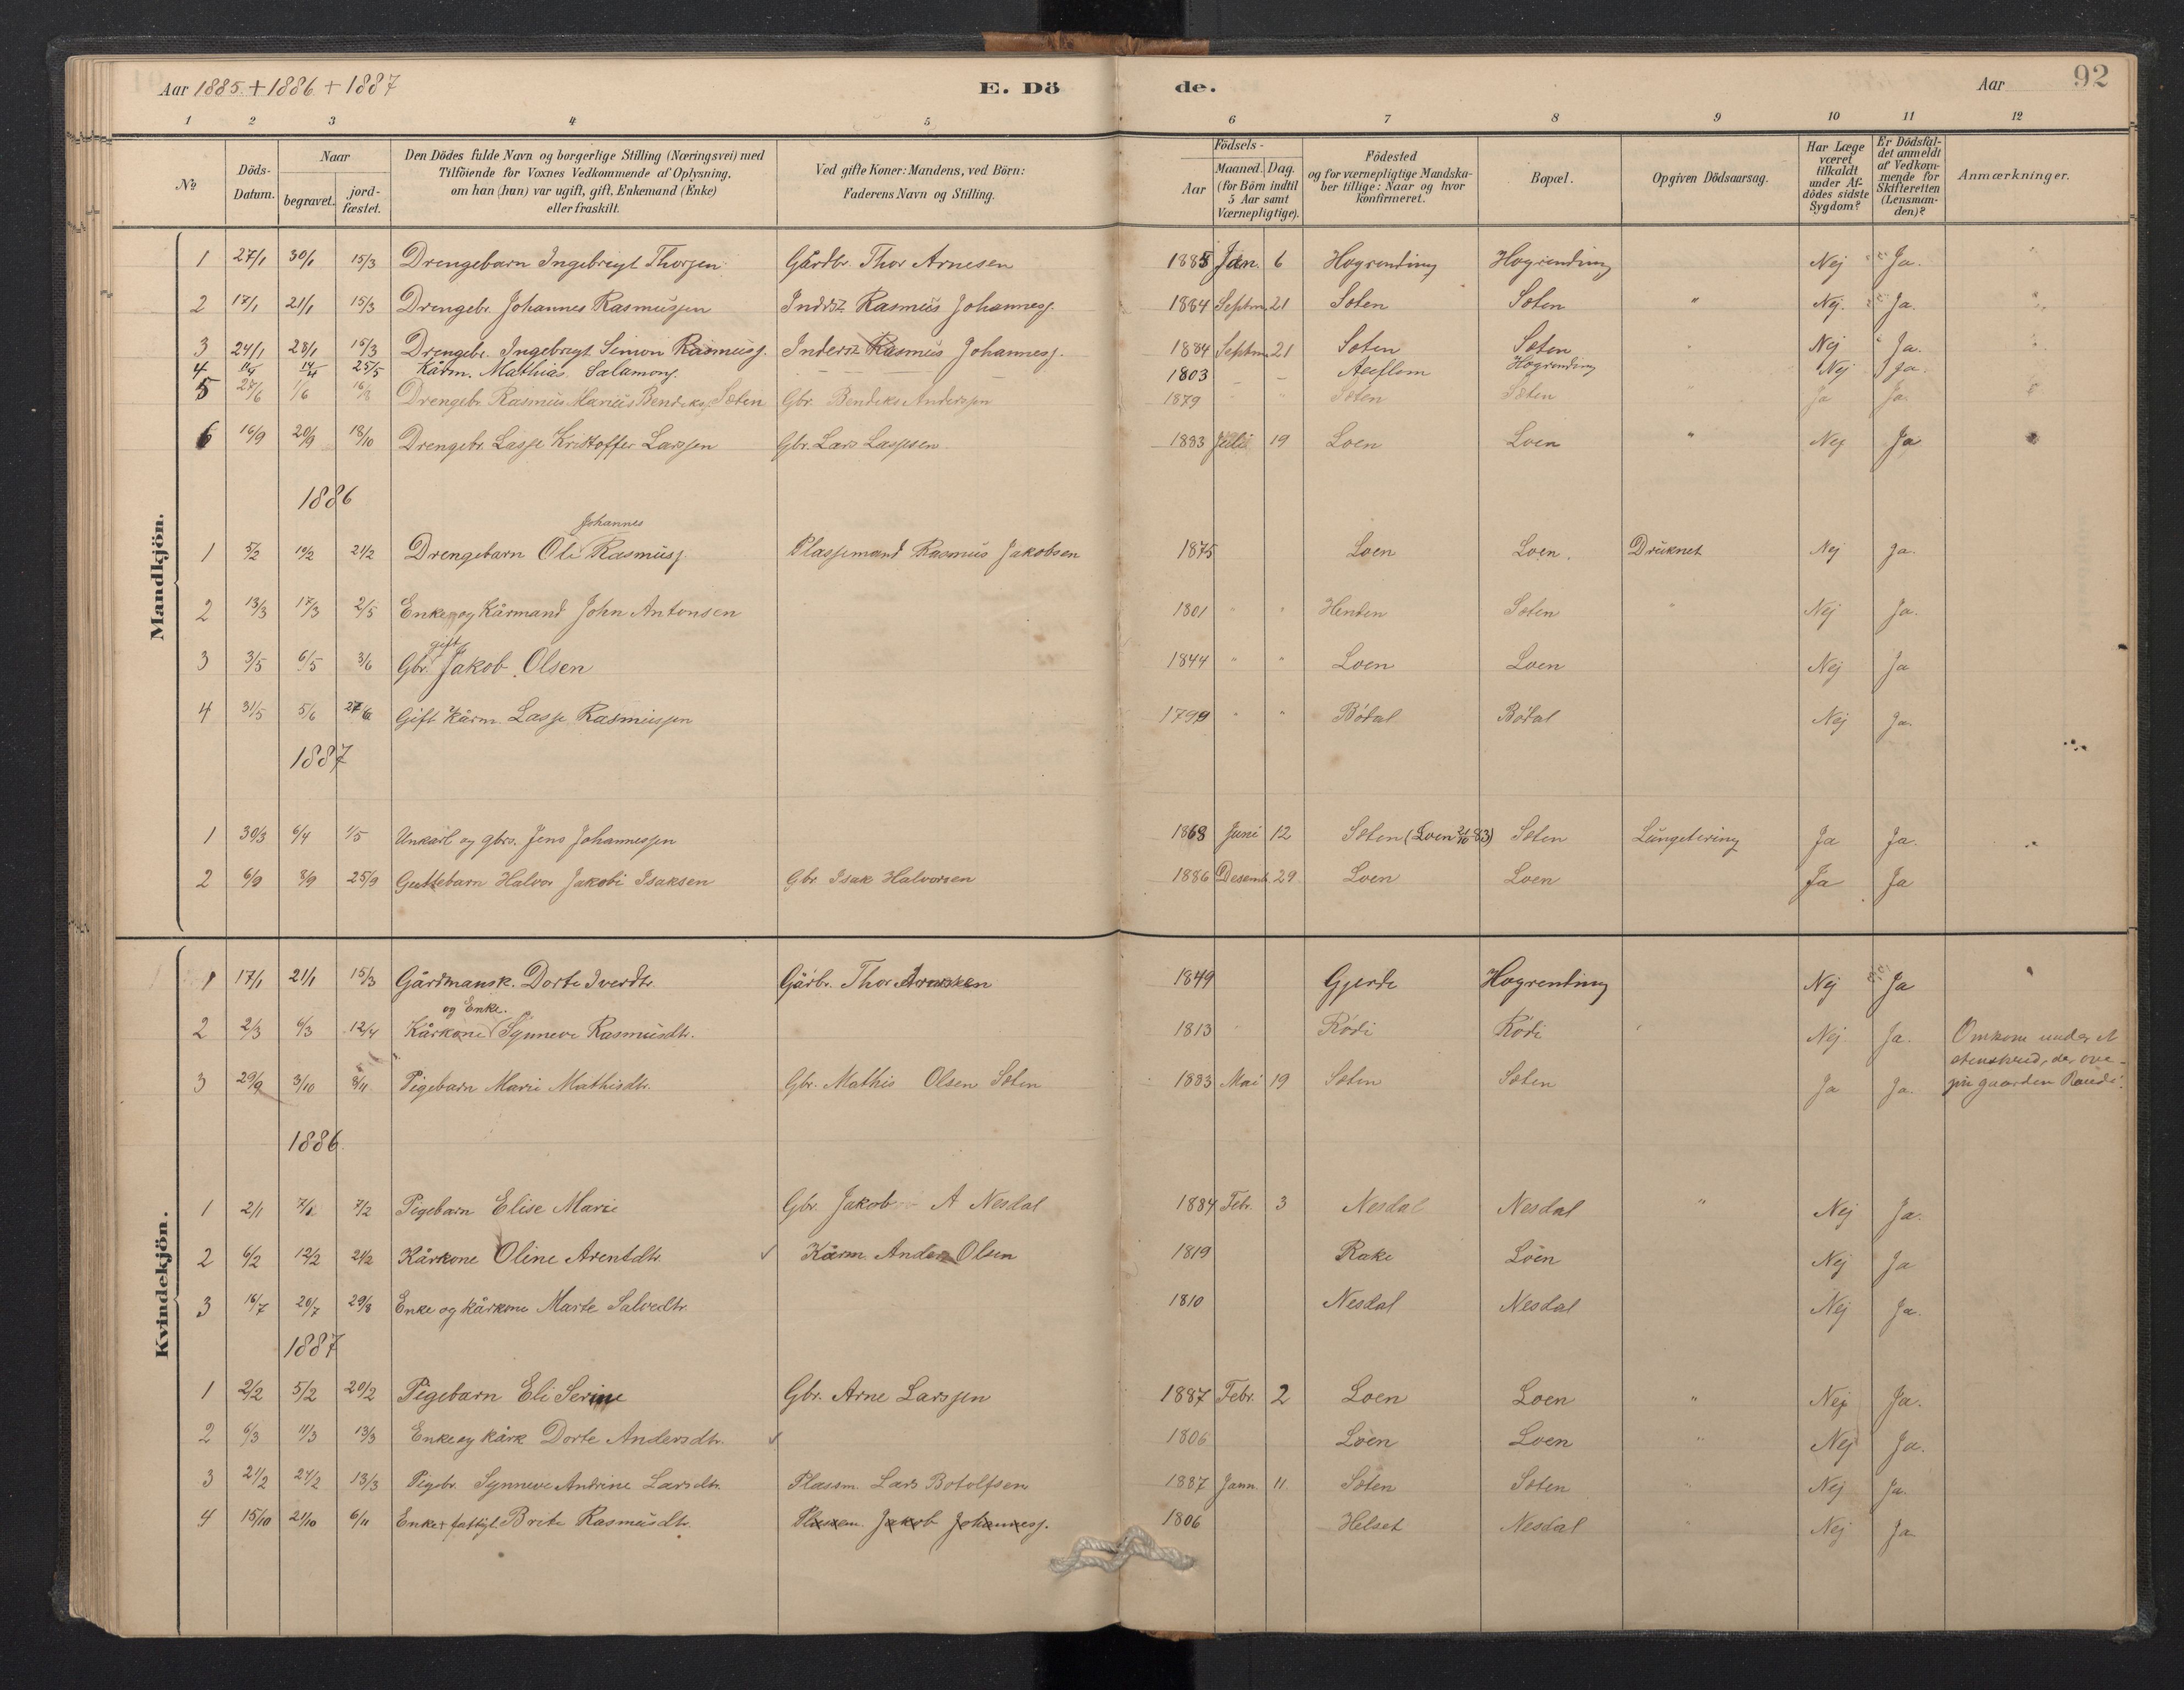 Aar 1885 + 1886 + 1887 E. Dö de. Aar 92
1 2 3 4 5 6 7 8 9 10 11 12
No Döds-Datum. Naar begravet. jordfæstet. Den Dödes fulde Navn og borgerlige Stilling (Næringsvei) med Tilföiende for Voxnes Vedkommende af Oplysning, om han (hun) var ugift, gift, Enkemand (Enke) eller fraskilt. Ved gifte Koner: Mandens, ved Börn: Faderens Navn og Stilling. Födsels- Aar Maaned. Dag. (for Börn indtil 5 Aar samt Værnepligtige). Födested og for værnepligtige Mandskaber tillige: Naar og hvor konfirmeret. Bopæl. Opgiven Dödsaarsag. Har Læge været tilkaldt under Afdödes sidste Sygdom? Er Dödsfaldet anmeldt af Vedkommende for Skifteretten (Lensmanden)? Anmærkninger.
Mandkjön.
1 27/1 30/1 15/3 Drengebarn Ingebregt Thorsen Gårdbr. Thor Arnesen 1885 Jan. 6 Hogrending Hogrending Nej Ja.
2 17/1 21/1 15/3 Drengebr. Johannes Rasmussen Inderst Rasmus Johanness. 1884 Septm. 21 Sæten Sæten " Nej. Ja.
3 24/1 28/1 15/3 Drengebr. Ingebregt Simon Rasmuss. Inderst Rasmus Johanness. 1884 Septm. 21 Sæten Sæten Nej Ja.
4 25/5 Kårm. Mathias Salamons. 1803 Hogrending Nej Ja.
5 27/6 1/6 Drengebr. Rasmus Marius Bendiks. Sæten Gbr. Bendiks Anderssen 1879 Sæten Sæten Ja Ja.
6 16/9 20/9 18/10 Drengebr. Lasse Kristoffer Larssen Gbr. Lars Lassesen 1883 Juli 19 Loen Loen " Nej Ja
1886
1 5/2 10/2 21/2 Drengebarn Ole Johannes Rasmuss. Plassemand Rasmus Jakobsen 1875 Loen Loen. Druknet Nej Ja.
2 13/3 17/3 2/5 Enkem. og Kårmand John Antonsen 1801 " " Henden Sæten Nej Ja.
3 3/5 6/5 3/6 Gbr. gift Jakob Olsen 1844 " " Loen Loen Nej Ja
4 31/5 5/6 27/6 Gift Kårm. Lasse Rasmussen 1799 " " Bödal Bödal Nej Ja.
1887
1 30/3 6/4 1/5 Unkarl og gbrs. Jens Johannessen 1868 Juni 12 Sæten (Loen 21/10 83) Sæten Lungetæring Ja Ja.
2 6/9 8/9 25/9 Guttebarn Halvor Jakobi Isaksen Gbr Isak Halvorsen 1886 Desemb. 29 Loen Loen Ja Ja
Kvindekjön.
1 17/1 21/1 15/3 Gårdmansk. Dorte Iverdtr. Gårbr. Thor Arnesen 1849 Gjerde Hogrending Nej Ja
2 2/3 6/3 12/4 Kårkone og Enke. Synneve Rasmusdtr. 1813 Rödi Rödi Nej Ja. Omkom under et
3 29/9 3/10 8/11 Pigebarn Marie Mathisdtr. Gbr. Mathis Olsen Sæten 1883 Mai 19 Sæten Sæten Ja Ja. gaarden
1886.
1 2/1 7/1 7/2 Pigebarn Elise Marie Gbr. Jakob A Nesdal 1884 Febr. 3 Nesdal Nesdal " Nej Ja.
2 6/2 12/2 21/2 Kårkone Oline Arentdtr. Kårm Anders Olsen 1819 Rake Loen Nej Ja
3 16/7 20/7 29/8 Enke og kårkone Marte Salvedtr. 1810 Nesdal Nesdal Nej Ja.
1887
1 2/2 5/2 20/2 Pigebarn Eli Serine Gbr. Arne Larssen 1887 Febr. 2 Loen Loen " Nej Ja.
2 6/3 11/3 13/3 Enke og kårk Dorte Andersdtr. 1806 Loen Loen " Nej Ja.
3 21/2 27/2 13/3 Pigebr. Synneve Andrine Larsdtr. Plassm. Lars Botolfsen 1887 Jann. 11 Sæten Sæten Nej Ja.
4 15/10 21/10 6/11 Enke + fattigl. Brite Rasmusdtr. Plassem. Jakob Johanness. 1806 Helset Nesdal Nej Ja